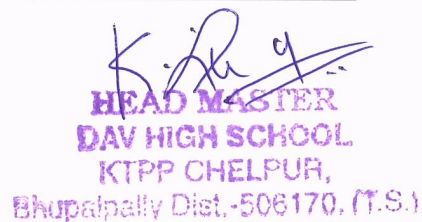 HEAD MASTER
DAV HIGH SCHOOL
KTPP CHELPUR,
Bhupalpally Dist.-506170, (T.S.)